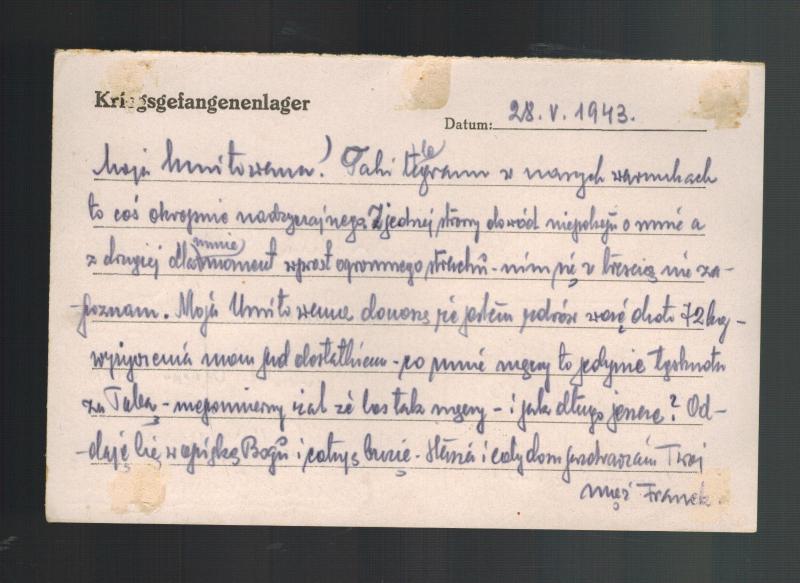 Kriegsgefangenenlager
Datum: 28. V. 1943.
Moja Umiłowana! Taki telegram w naszych warunkach
to coś okropnie nadzwyczajnego. Z jednej strony dowód niepokoju o mnie a
z drugiej dla mnie moment wprost ogromnego strachu - nim się z treścią nie za-
poznam. Moja Umiłowana donoszę że jestem zdrów ważę około 72 kg -
wyżywienia mam pod dostatkiem - co mnie męczy to jedynie tęsknota
za Tobą - niepomierny żal że los tak męczy - i jak długo jeszcze? Od-
-daję Cię w opiekę Bogu i całuję buzię. i cały dom pozdrawiam Twój
mąż Franek